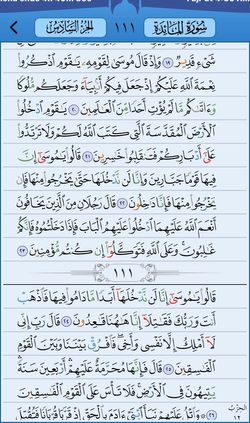 سُورَةُ المَائدة ١١١ الجزء السادس
شَيْءٍ قَدِيرٌ ١٩ وَإِذْ قَالَ مُوسَىٰ لِقَوْمِهِ يَٰقَوْمِ ٱذْكُرُوا۟
نِعْمَةَ ٱللَّهِ عَلَيْكُمْ إِذْ جَعَلَ فِيكُمْ أَنۢبِيَآءَ وَجَعَلَكُم مُّلُوكًا
وَءَاتَىٰكُم مَّا لَمْ يُؤْتِ أَحَدًا مِّنَ ٱلْعَٰلَمِينَ ٢٠ يَٰقَوْمِ ٱدْخُلُوا۟
ٱلْأَرْضَ ٱلْمُقَدَّسَةَ ٱلَّتِى كَتَبَ ٱللَّهُ لَكُمْ وَلَا تَرْتَدُّوا۟
عَلَىٰٓ أَدْبَارِكُمْ فَتَنقَلِبُوا۟ خَٰسِرِينَ ٢١ قَالُوا۟ يَٰمُوسَىٰٓ إِنَّ
فِيهَا قَوْمًا جَبَّارِينَ وَإِنَّا لَن نَّدْخُلَهَا حَتَّىٰ يَخْرُجُوا۟ مِنْهَا فَإِن
يَخْرُجُوا۟ مِنْهَا فَإِنَّا دَٰخِلُونَ ٢٢ قَالَ رَجُلَانِ مِنَ ٱلَّذِينَ يَخَافُونَ
أَنْعَمَ ٱللَّهُ عَلَيْهِمَا ٱدْخُلُوا۟ عَلَيْهِمُ ٱلْبَابَ فَإِذَا دَخَلْتُمُوهُ فَإِنَّكُمْ
غَٰلِبُونَ وَعَلَى ٱللَّهِ فَتَوَكَّلُوٓا۟ إِن كُنتُم مُّؤْمِنِينَ ٢٣
١١١
قَالُوا۟ يَٰمُوسَىٰٓ إِنَّا لَن نَّدْخُلَهَآ أَبَدًا مَّا دَامُوا۟ فِيهَا فَٱذْهَبْ
أَنتَ وَرَبُّكَ فَقَٰتِلَآ إِنَّا هَٰهُنَا قَٰعِدُونَ ٢٤ قَالَ رَبِّ إِنِّى
لَآ أَمْلِكُ إِلَّا نَفْسِى وَأَخِى فَٱفْرُقْ بَيْنَنَا وَبَيْنَ ٱلْقَوْمِ
ٱلْفَٰسِقِينَ ٢٥ قَالَ فَإِنَّهَا مُحَرَّمَةٌ عَلَيْهِمْ أَرْبَعِينَ سَنَةً
يَتِيهُونَ فِى ٱلْأَرْضِ فَلَا تَأْسَ عَلَى ٱلْقَوْمِ ٱلْفَٰسِقِينَ
٢٦ وَٱتْلُ عَلَيْهِمْ نَبَأَ ٱبْنَىْ ءَادَمَ بِٱلْحَقِّ إِذْ قَرَّبَا قُرْبَانًا فَتُقُبِّلَ
الحزب
١٢